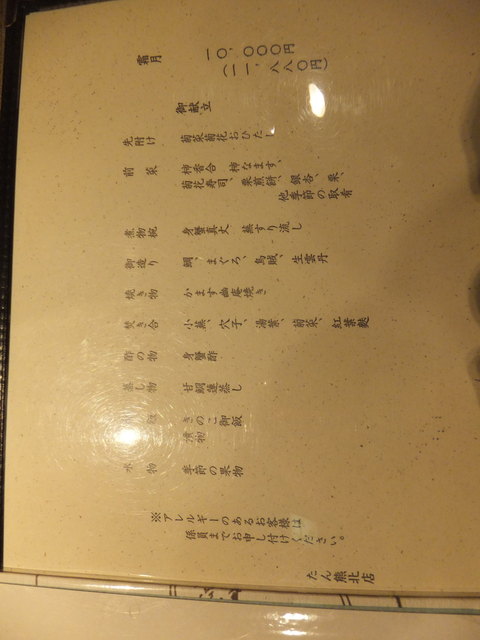 霜月
一〇、〇〇〇円
（一一、八八〇円）
御献立
先附け 菊菜菊花おひたし
前菜 柿香合 柿なます、
菊花寿司 栗煎餅、銀杏、栗、
他季節の取肴
煮物椀 身蟹真丈 蕪すり流し
御造り 鯛、まぐろ、烏賊、生雲丹
焼き物 かます幽庵焼き
焚き合 小蕪 穴子、湯葉、菊菜、紅葉麩
酢の物 身蟹酢
蒸し物 甘鯛蓮蒸し
きのこ御飯
漬物
水物 季節の果物
※アレルギーのあるお客様は
係員までお申し付けください。
たん熊北店